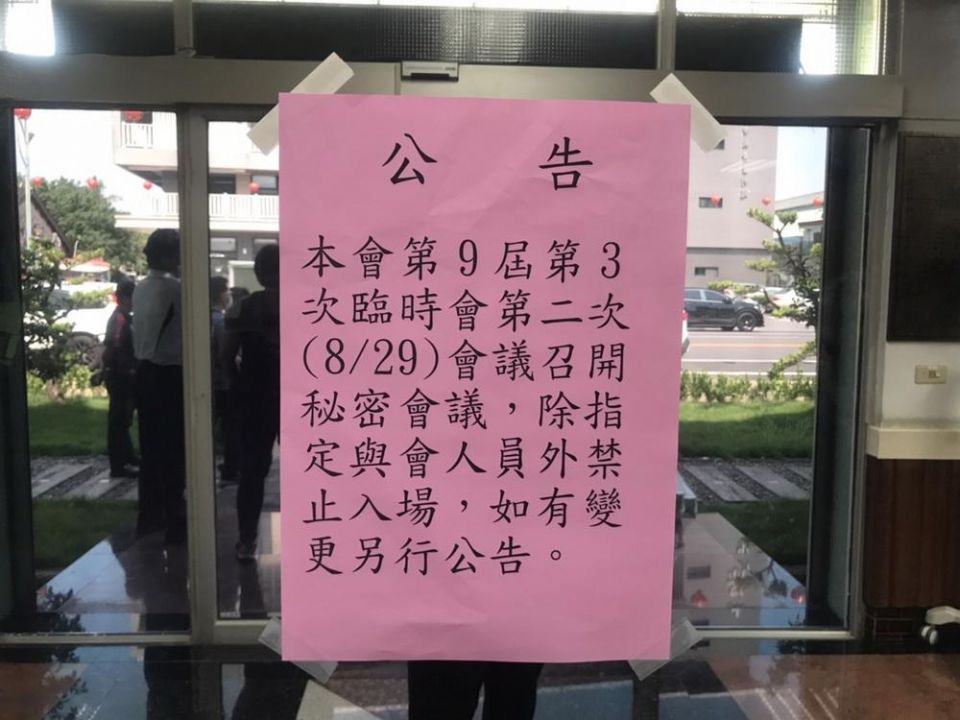 公告
本會第9屆第3
次臨時會第二次
(8/29)會議召開
秘密會議，除指
定與會人員外禁
止入場，如有變
更另行公告。